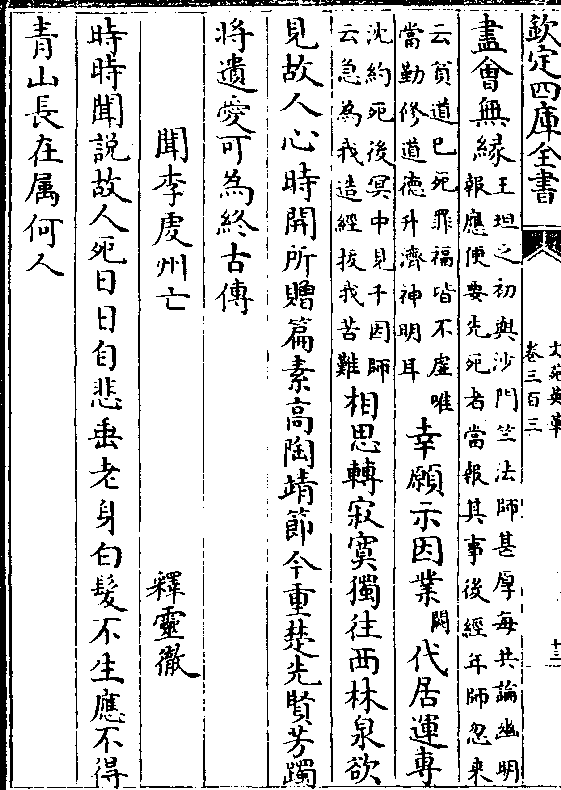 欽定四庫全書
文苑英華
卷三百三
盡會無緣
王坦之初與沙門竺法師甚厚每共論幽明
報應便要先死者當報其事後經年師忽來
云貧道已死罪福皆不虛唯
當勤修道德升濟神明耳
幸願示因業闕代居運專
沈約死後冥中見千因師
云急為我造經拔我苦難
相思轉寂寞獨往西林泉欲
見故人心時開所贈篇素高陶靖節今重楚先賢芳躅
將遺愛可為終古傳
聞李處州亡
釋靈徹
時時聞說故人死日日自悲垂老身白髮不生應不得
青山長在属何人